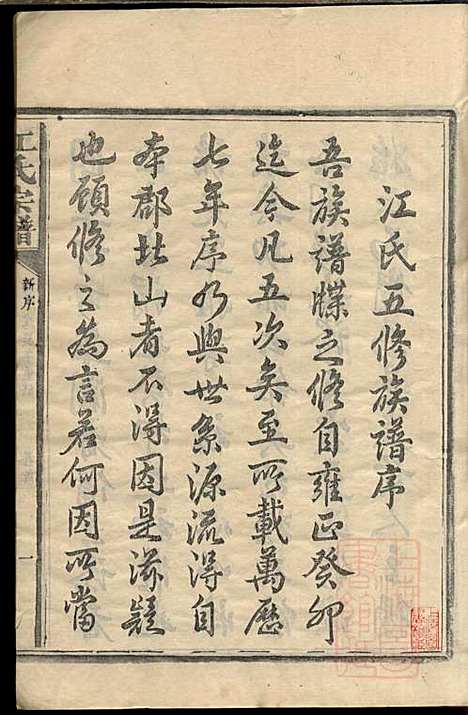 江氏五修族譜序
吾族譜牒之修自雍正癸卯
迄今凡五次矣至所載萬歷
七年序乃與世系源流得自
本郡北山者不得因是滋疑
也顧修之為言若何因所當
江氏宗譜
新序
一